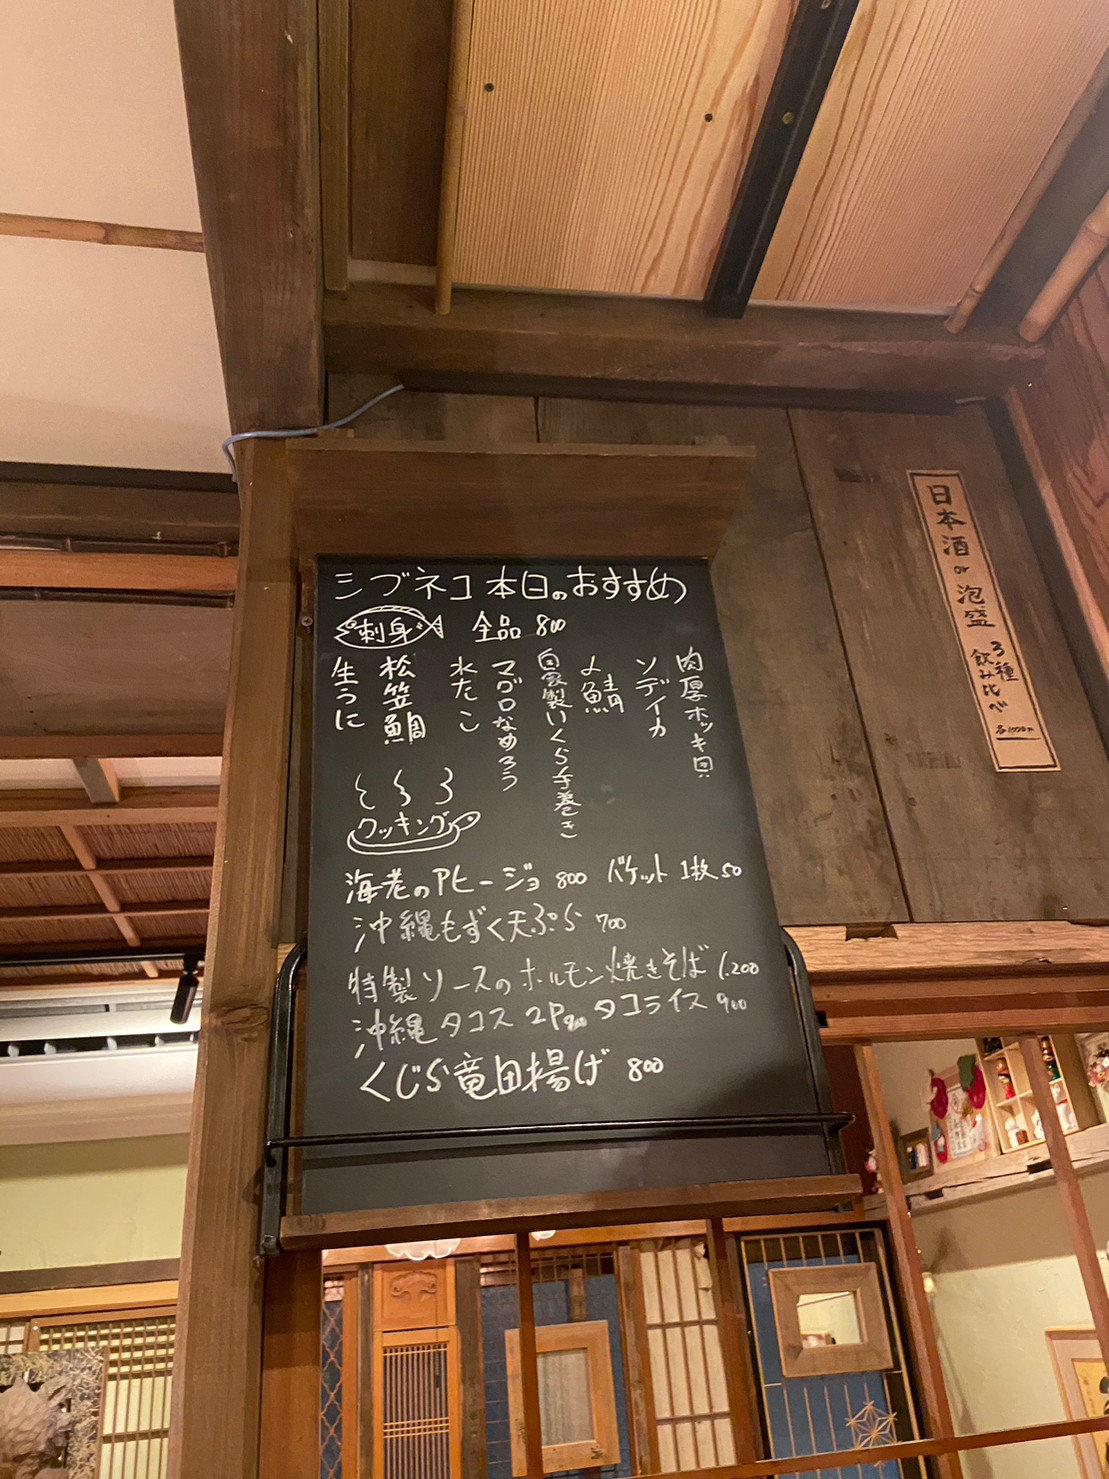 シブネコ本日のおすすめ
刺身 全品 800
肉厚ホッキ貝
ソデイカ
〆鯖
自家製いくら手巻き
マグロなめろう
水たこ
松笠鯛
生うに
クッキング
海老のアヒージョ 800 バケット 1枚 50
沖縄もずく天ぷら 700
特製ソースのホルモン焼きそば 1.200
沖縄タコス 2P 800 タコライス 900
くじら竜田揚げ 800
日本酒or泡盛
3種
飲み比べ
各1000円